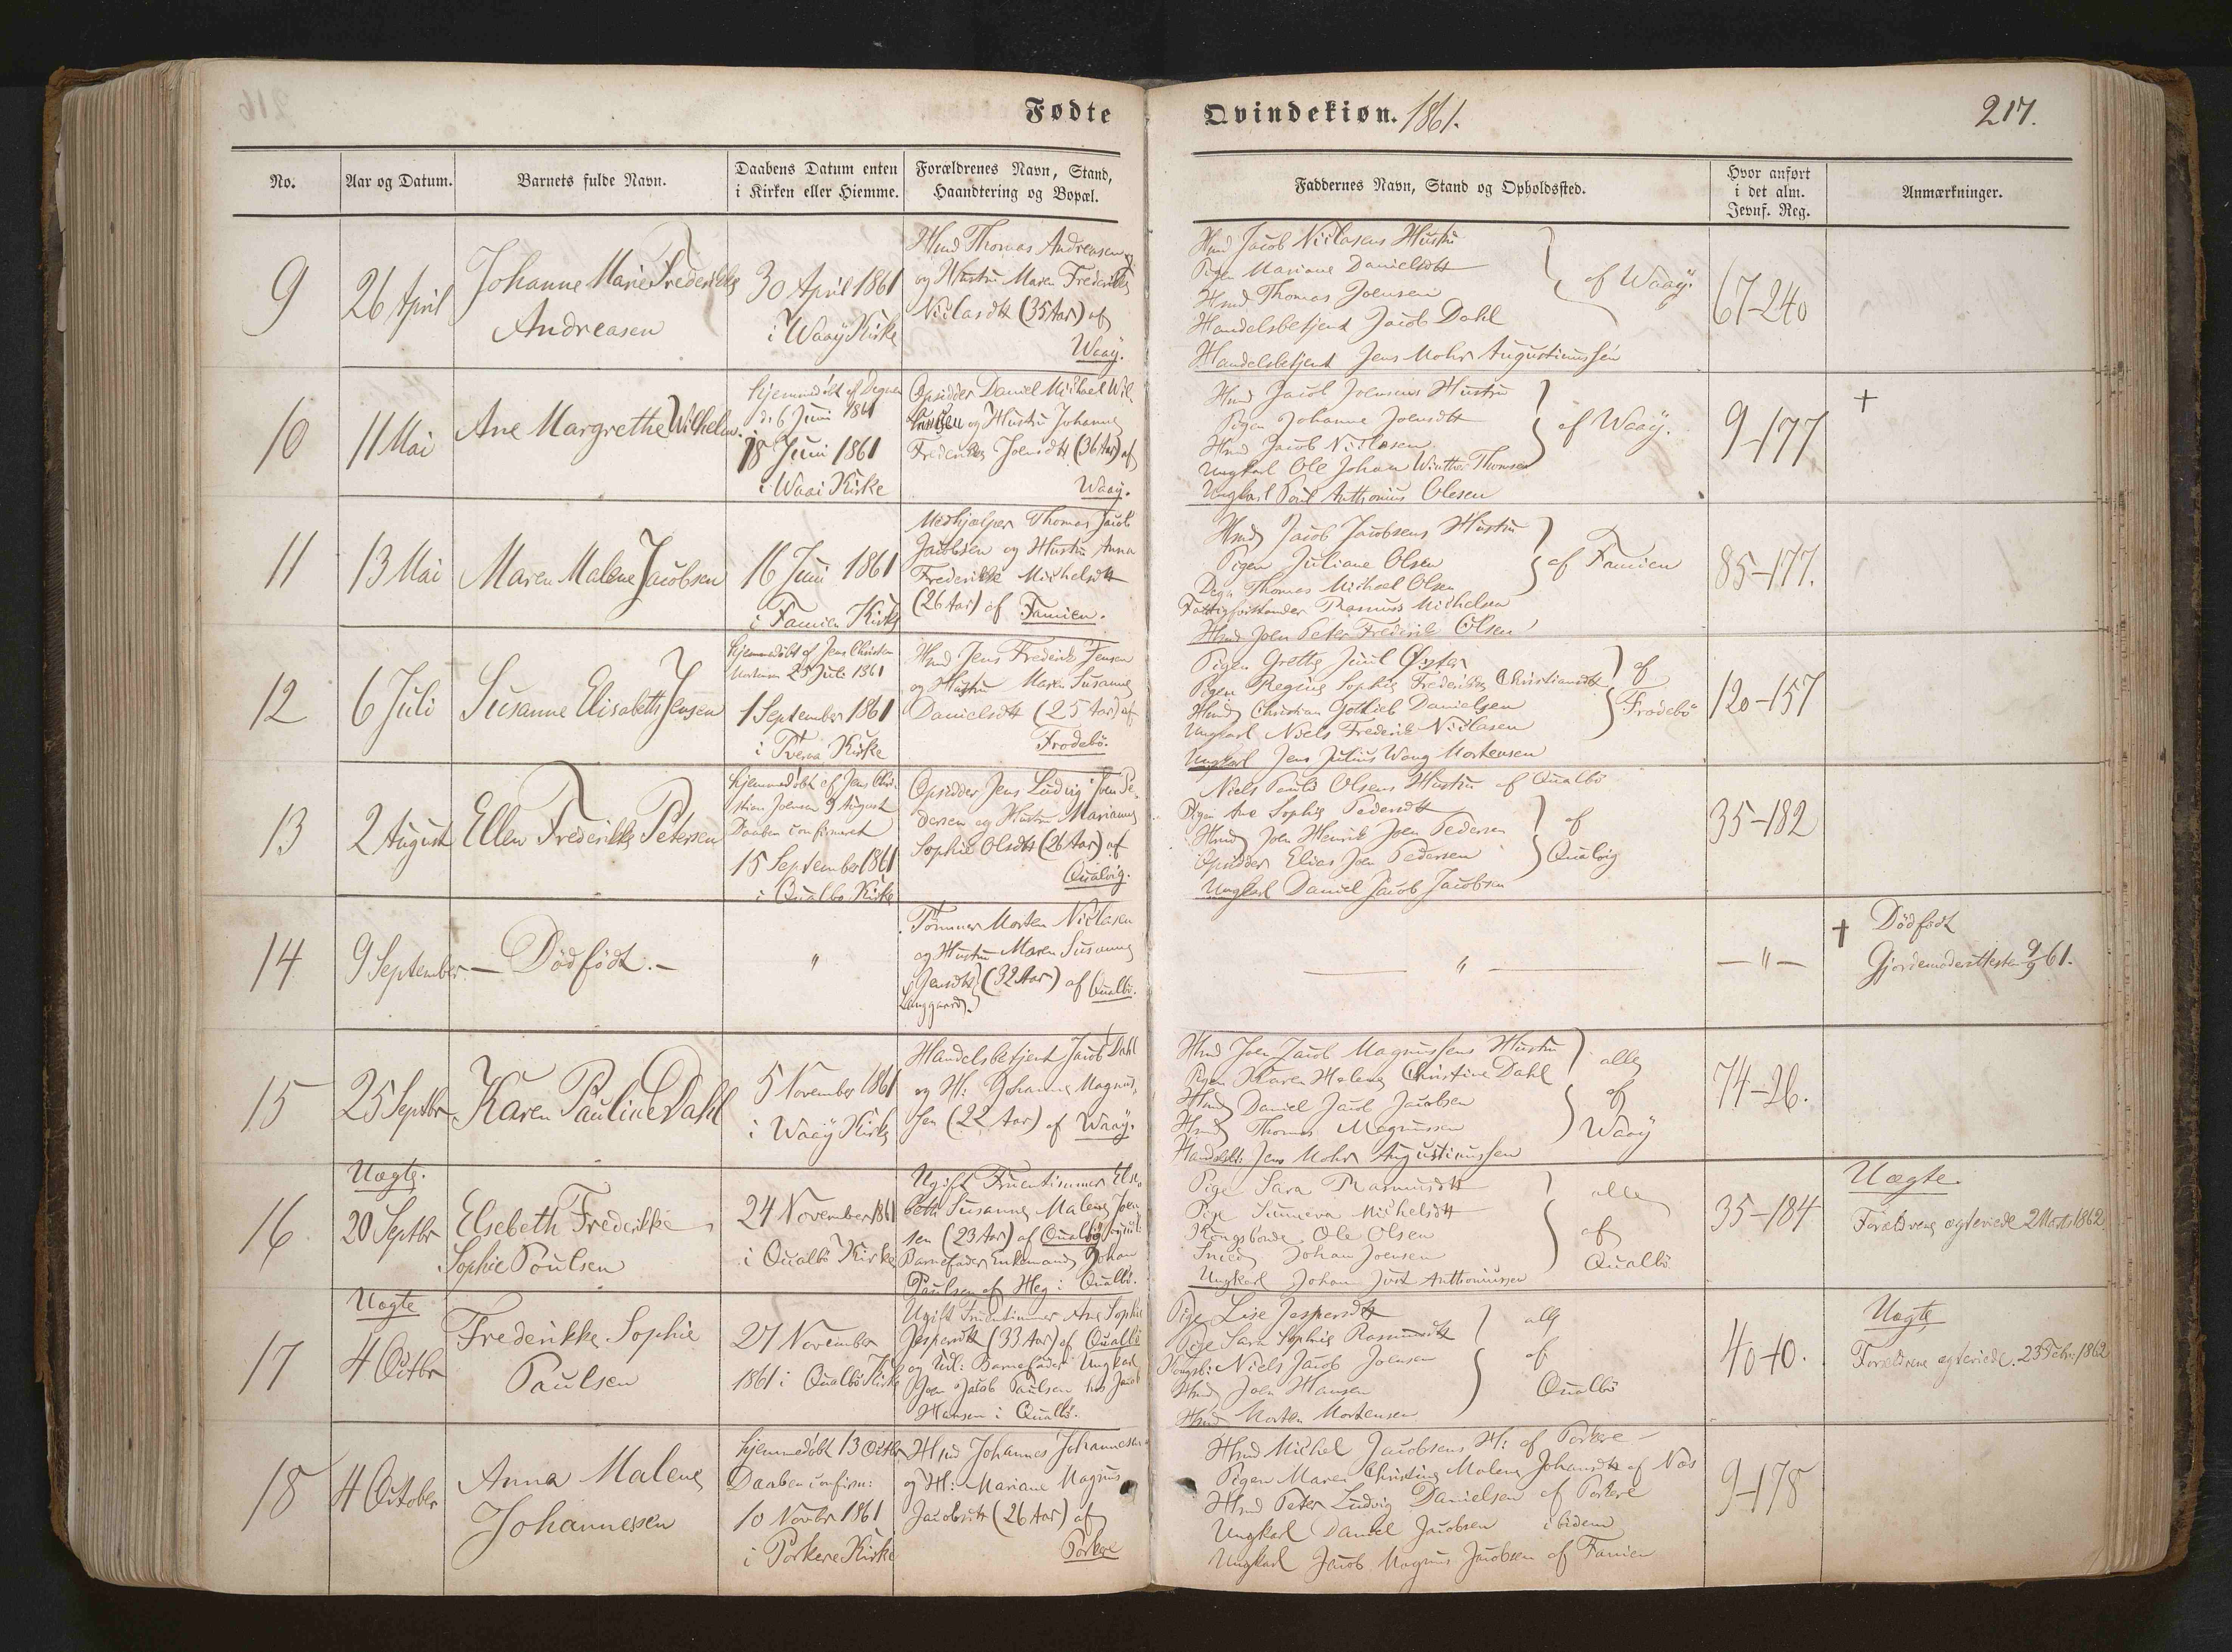 Fødte
Qvindekiøn. 1861.
217.
No.
Aar og Datum.
Barnets fulde Navn.
Daabens Datum enten
i Kirken eller Hiemme.
Forældrenes Navn, Stand,
Haandtering og Bopæl.
Faddernes Navn, Stand og Opholdssted.
Hvor anført
i det alm.
Jevnf. Reg.
Anmærkninger.
9
26 April
Johanne Marie Frederikke
Andreasen
30 April 1861
i Waaÿ Kirke
Hmd Thomas Andreasen
og Hustru Maren Frederikke
Niclasdtt (35 Aar) af
Waaÿ.
Hmd Jacob Niclasens Hustru
Pigen Mariane Danielsdtt
Hmd Thomas Joensen
Handelsbetjent Jacob Dahl
Handelsbetjent Jens Mohr Augustinussen
af Waaÿ.
67-240
10
11 Mai
Ane Margrethe Wilhelm.
Hjemmedøbt af Degnen
d: 6 Juni 1861
18 Juni 1861
i Waai Kirke
Opsidder Daniel Michael Wil-
og Hustru Johanne
Frederikke Joensdtt (36 Aar) af
Waaÿ.
Hmd Jacob Joensens Hustru
Pigen Johanne Joensdtt
Hmd Jacob Niclasen
Ungkarl Ole Johan Winther Thomsen
Ungkarl Poul Anthonius Olesen
af Waaÿ.
9-177
+
11
13 Mai
Maren Malene Jacobsen
16 Juni 1861
i Famien Kirke
Medhjælper Thomas Jacob
Jacobsen og Hustru Anna
Frederikke Michelsdtt
(26 Aar) af Famien.
Hmd Jacob Jacobsens Hustru
Pigen Juliane Olsen
Degn Thomas Michael Olsen
Fattigforstander Rasmus Michelsen
Hmd Joen Peter Frederik Olsen
af Famien
85-177.
12
6 Juli
Susanne Elisabeth Jensen
Hjemmedøbt af Jens Christian
Mortensen 25 Juli 1861
1 September 1861
i Tveraa Kirke
Hmd Jens Frederik Jensen
og Hustru Maren Susanne
Danielsdtt (25 Aar) af
Frodebö.
Pigen Grethe Juul Øster
Pigen Regine Sophie Frederikke Christiansdtt
Hmd Christian Gottlieb Danielsen
Ungkarl Niels Frederik Niclasen
Ungkarl Jens Julius Wang Mortensen
af
Frodebö
120-157
13
2 August
Ellen Frederikke Petersen
Hjemmedøbt af Jens Chri-
stian Joensen 9 August
Daaben confirmeret
15 September 1861
i Qualbo Kirke
Opsidder Jens Ludvig Joen Pe-
dersen og Hustru Marianne
Sophie Olsdtt (26 Aar) af
Qualvig.
Niels Pauld Olsens Hustru af Qualbö
Pigen Ane Sophie Pedersdtt
Hmd Joen Henrik Joen Pedersen
Opsidder Elias Joen Pedersen
Ungkarl Daniel Jacob Jacobsen
af
Qualvig
35-182
14
9 September
— Dödfödt. —
"
Tömmer Morten Niclasen
og Hustru Maren Susanne
Jensdtt (32 Aar) af Qualbö.
Langgaard
— " —
— " —
† Dödfødt
Gjordemoderattesten 9/9 61.
15
25 Septbr
Karen Pauline Dahl
5 November 1861
i Waaÿ Kirke
Handelsbetjent Jacob Dahl
og H: Johanne Magnus-
sen (22 Aar) af Waaÿ.
Hmd Joen Jacob Magnussens Hustru
Pigen Karen Malene Christine Dahl
Hmd Daniel Jacob Jacobsen
Hmd Thomas Magnussen
Handelsb: Jens Mohr Augustinussen
alle
af
Waaÿ
74-26.
16
Uægte.
20 Septbr
Elsebeth Frederikke
Sophie Poulsen
24 November 1861
i Qualbö Kirke
Ugift Fruentimmer Else-
beth Susanne Malene Joen-
sen (23 Aar) af Qualbö
Barnefader Enkemand Johan
Paulsen af Heg i Qualbö.
Pige Sara Rasmusdtt
Pige Sunneva Michelsdtt
Kongsbonde Ole Olsen
Smed Johan Joensen
Ungkarl Johan Just Anthoniussen
alle
af
Qualbö
35-184
Uægte.
Forældrene ægteviede 2 Marts 1862
17
Uægte
4 Octbr
Frederikke Sophie
Paulsen
27 November
1861 i Qualbö Kirke
Ugift Fruentimmer Ane Sophie
Jespersdtt (33 Aar) af Qualbö
og Udl: Barnefader Ungkarl
Joen Jacob Paulsen hos Jacob
Hansen i Qualbö.
Pige Lise Jespersdtt
Pige Sara Sophie Rasmusdtt
Kongsb: Niels Jacob Joensen
Hmd Joen Hansen
Hmd Morten Mortensen
alle
af
Qualbö
40-40.
Uægte
Forældrene ægteviede. 23 Febr. 1862
18
4 October
Anna Malene
Johannessen
Hjemmedøbt 13 Octbr
Daaben confirm:
10 Novbr 1861
i Porkere Kirke
Hmd Johannes Johannesen
og H: Mariane Magnus
Jacobsdtt (26 Aar) af
Porkere
Hmd Michel Jacobsens H: af Porkere
Pigen Maren Christine Malene Johansdtt af Næs
Hmd Peter Ludvig Danielsen af Porkere
Ungkarl Daniel Jacobsen ibidem
Ungkarl Jacob Magnus Jacobsen af Famien
9-178